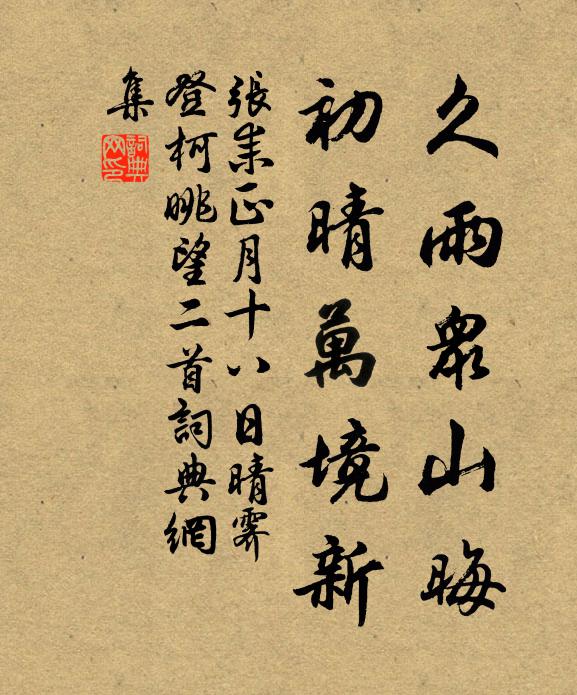 久雨眾山晦
初晴萬境新
張耒正月十八日晴霽
登柯眺望二首詞典網
集
詞典網印